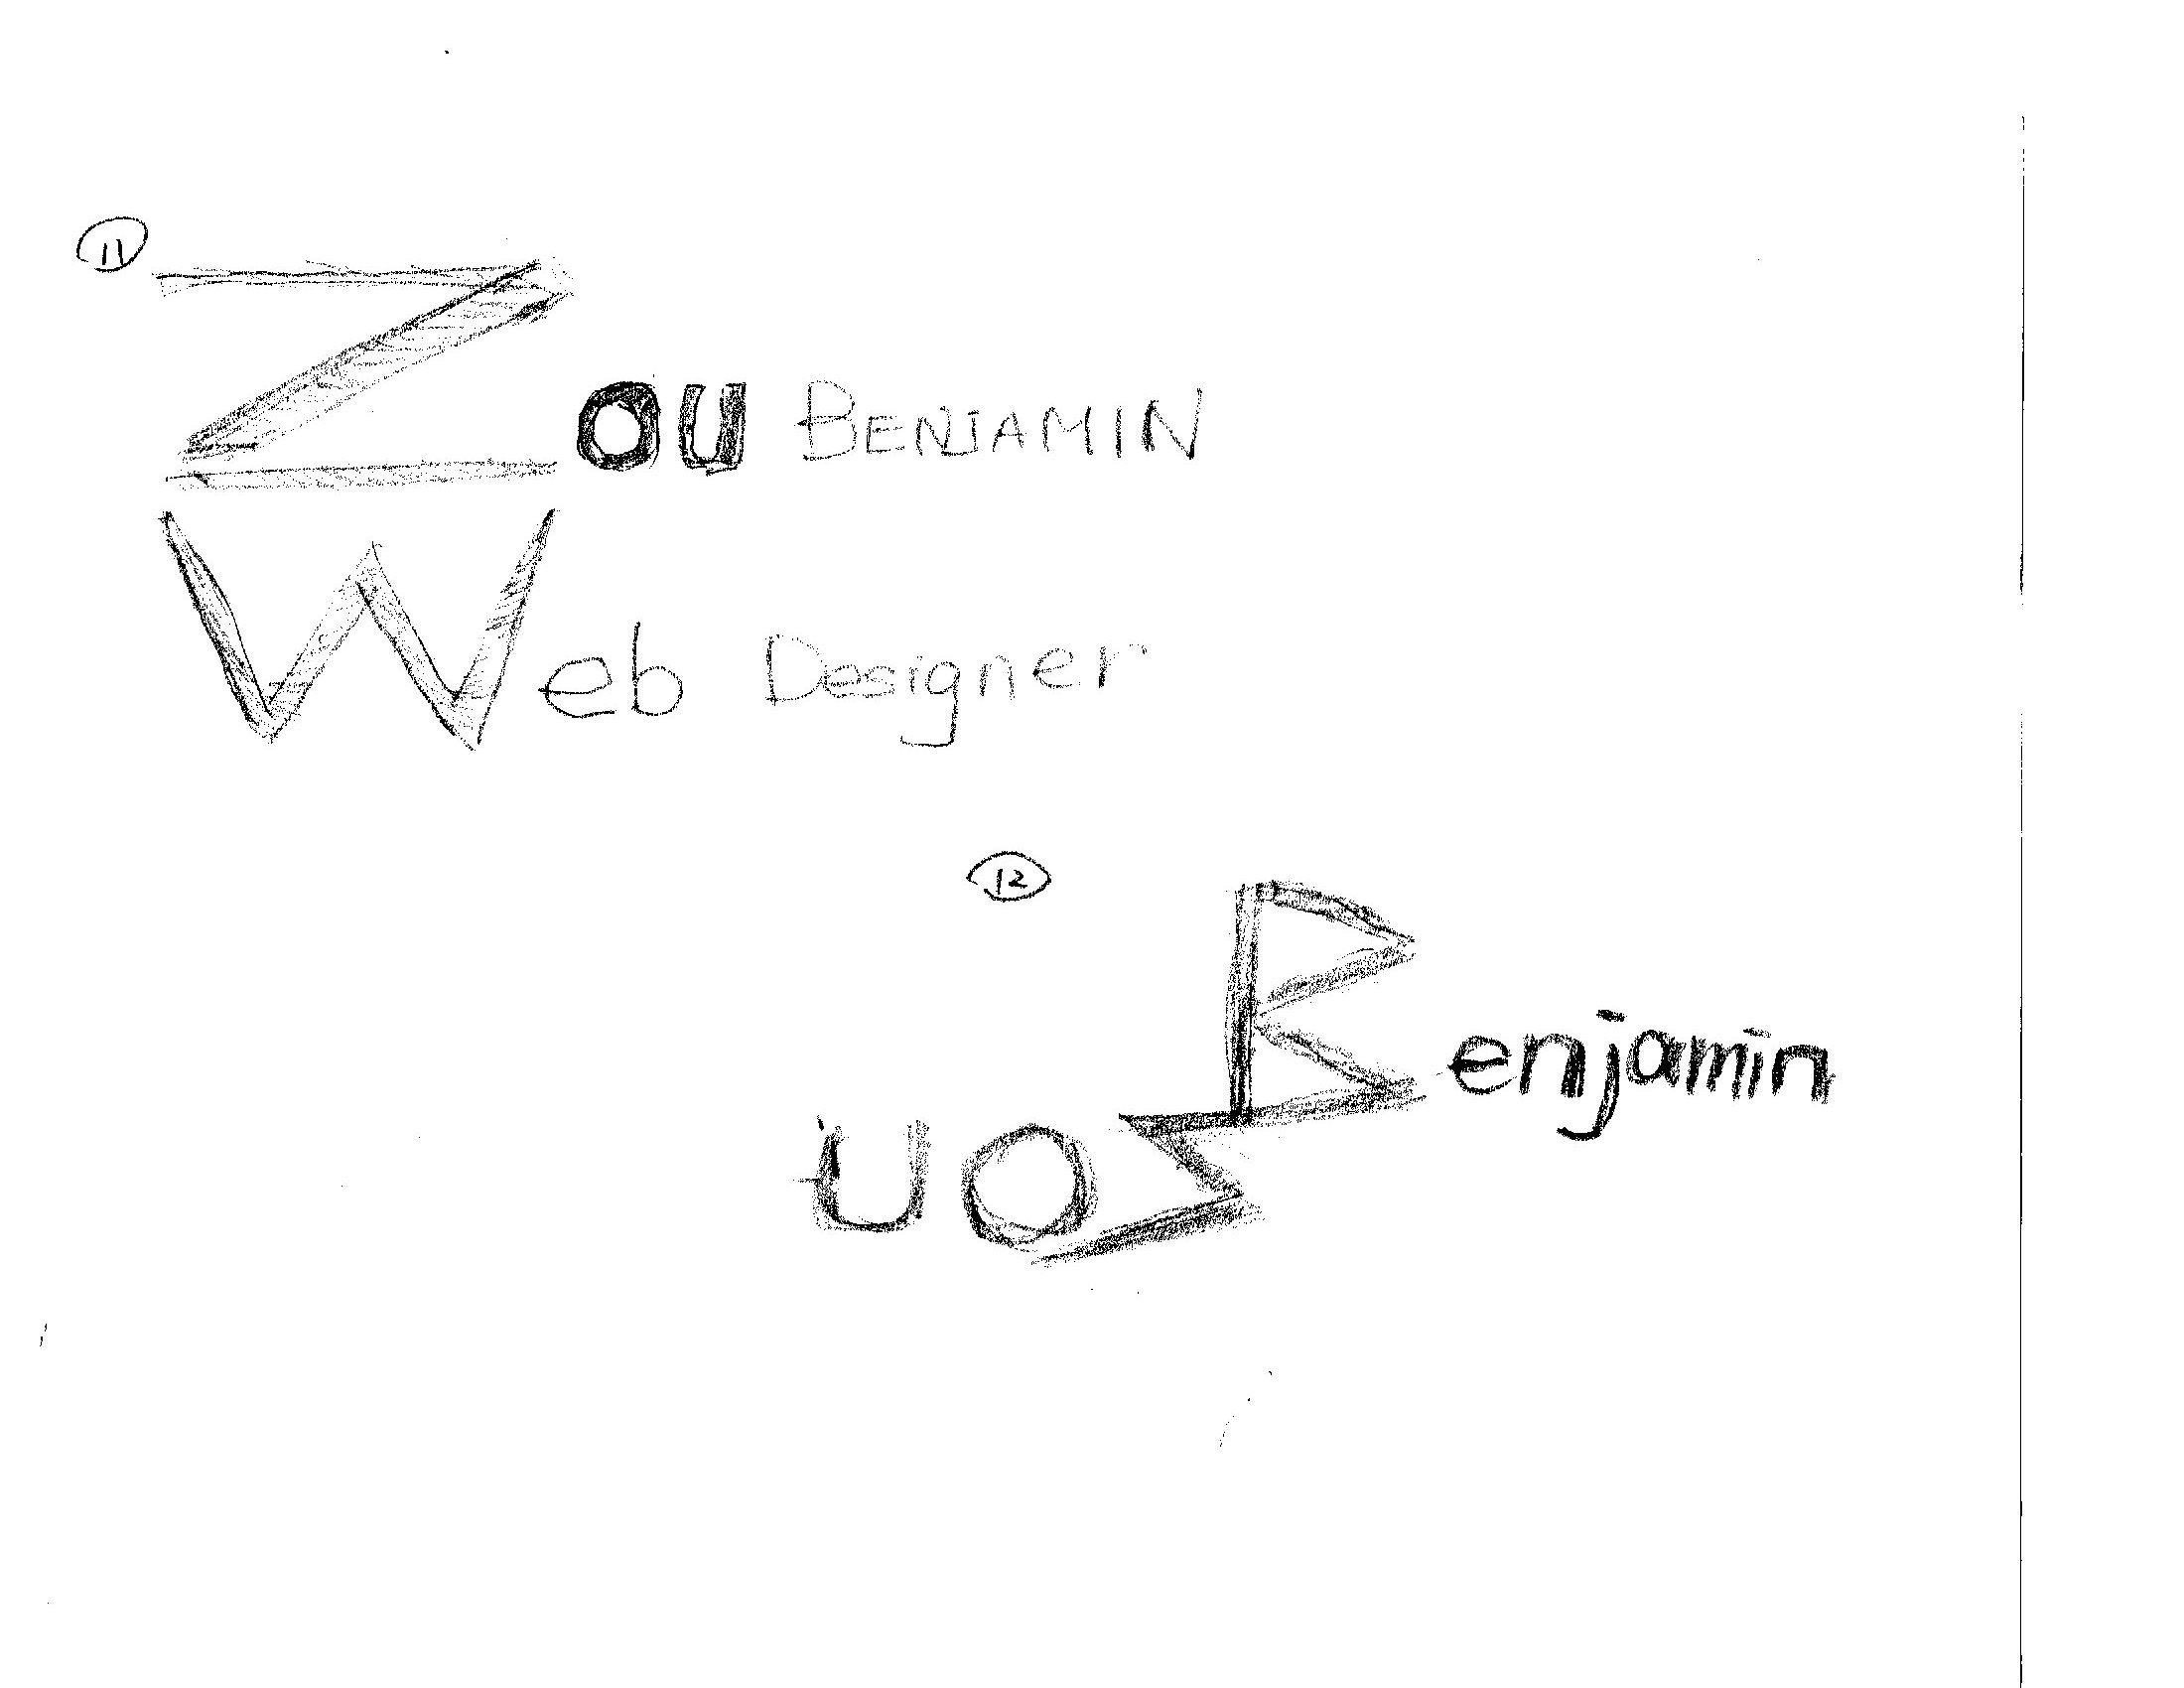 11
ZOU BENJAMIN
Web Designer
12
Benjamin
UOZ